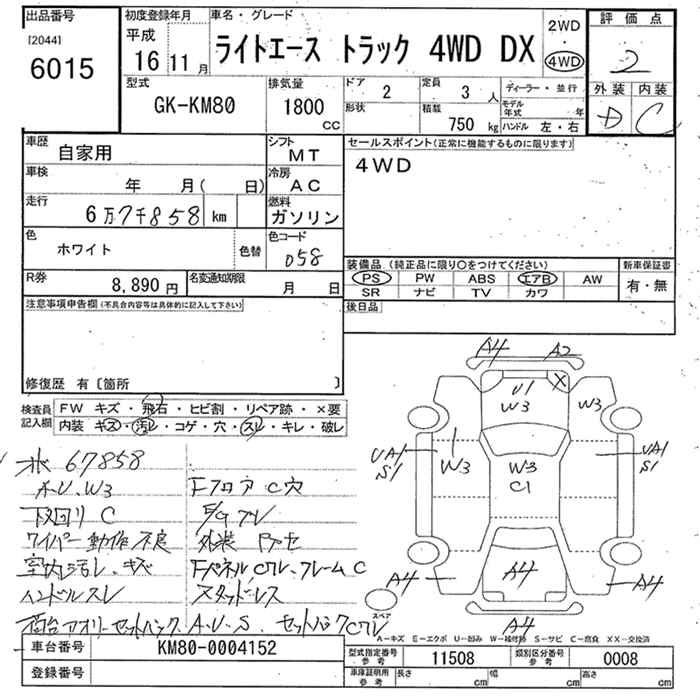 出品番号 初度登録年月 車名・グレード 2WD 評価点
[2044] 平成 ・
6015 16 11月 ライトエース トラック 4WD DX 4WD 2
型式 排気量 ドア 2 定員 3人 ディーラー・並行 外装 内装
GK-KM80 1800 CC 形状 積載 750kg モデル年式 年 D C
ハンドル 左・右
車歴 自家用 シフト MT セールスポイント(正常に機能するものに限ります)
車検 年 月( 日) 冷房 AC 4WD
走行 6万7千858 km 燃料 ガソリン
色 ホワイト 色替 色コード 058
R券 8,890円 名変通知期限 月 日 装備品(純正品に限り○をつけてください) 新車保証書
PS PW ABS エアB AW 有・無
SR ナビ TV カワ
注意事項申告欄(不具合内容等は具体的に記入して下さい) 後日品
修復歴 有〔箇所 〕
検査員記入欄 FW キズ・飛石・ヒビ割・リペア跡・×要
内装 キズ・汚レ・コゲ・穴・スレ・キレ・破レ
A4 A2
U1 X
W3 W3
UA1 S1 W3 W3 C1 UA1 S1
A4 A4 A4
スペア A4
67858
A.U.W3 Fフロア C穴
下回リ C
ワイパー動作不良 外装
室内汚レ、キズ Fパネル.Cワレ.フレームC
ハンドルスレ スタッドレス
荷台アオリ A.U.S.
A-キズ E-エクボ U-凹み W-補修跡 S-サビ C-腐食 XX-交換済
車台番号 KM80-0004152 型式指定番号 参考 11508 類別区分番号 参考 0008
登録番号 車庫証明用 参考 長さ cm 幅 cm 高さ cm